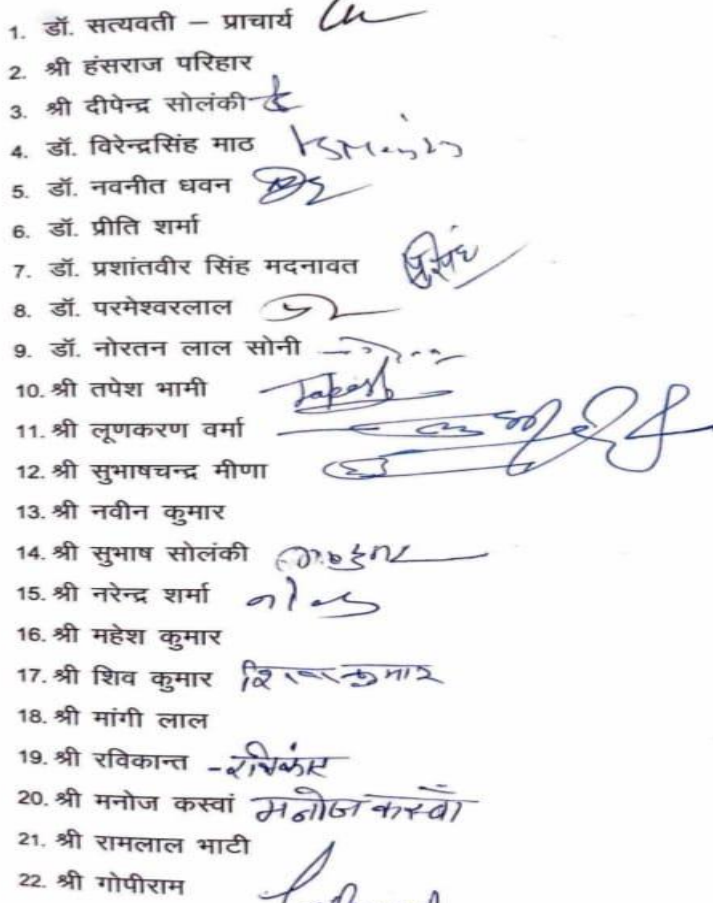 1. डॉ. सत्यवती – प्राचार्य
2. श्री हंसराज परिहार
3. श्री दीपेन्द्र सोलंकी
4. डॉ. विरेन्द्रसिंह माठ
5. डॉ. नवनीत धवन
6. डॉ. प्रीति शर्मा
7. डॉ. प्रशांतवीर सिंह मदनावत
8. डॉ. परमेश्वरलाल
9. डॉ. नोरतन लाल सोनी
10. श्री तपेश भामी Tapesh
11. श्री लूणकरण वर्मा
12. श्री सुभाषचन्द्र मीणा
13. श्री नवीन कुमार
14. श्री सुभाष सोलंकी
15. श्री नरेन्द्र शर्मा
16. श्री महेश कुमार
17. श्री शिव कुमार शिवकुमार
18. श्री मांगी लाल
19. श्री रविकान्त - रविकांत
20. श्री मनोज कस्वां मनोज कस्वाँ
21. श्री रामलाल भाटी
22. श्री गोपीराम